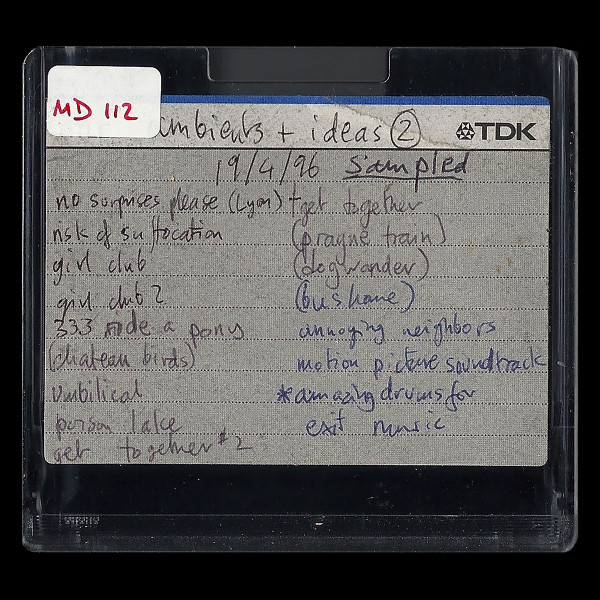 MD 112
ambients + ideas ②
TDK
19/4/96 Sampled
no surprises please (Lyon) + get together
risk of suffocation
(prague train)
girl club
(dogwander)
girl club 2
(bus home)
333 ride a pony
annoying neighbors
(chateau birds)
motion picture soundtrack
Umbilical
*amazing drums for
poison lake
exit music
get together #2